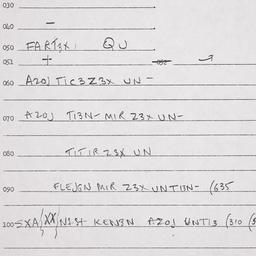 030
040 —
050 FART3X: QU
051 + 052 →
060 AZOJ TIC3Z3X UN—
070 AZOJ TI3N— MIR Z3X UN—
080 TITIR Z3X UN
090 FLEJGN MIR Z3X UNTI3N— (635
100 KEN3N AZOJ UNTI3 (310